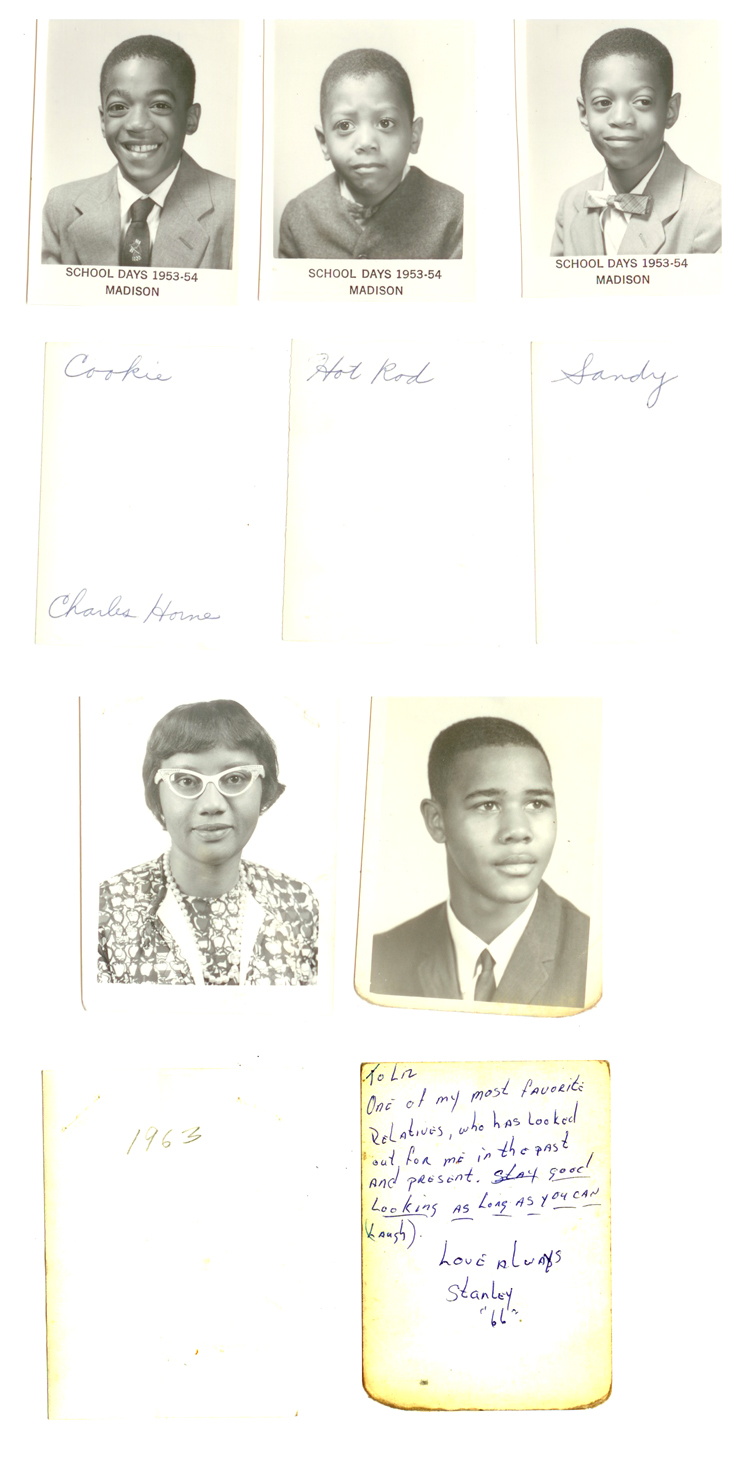 SCHOOL DAYS 1953-54
MADISON
SCHOOL DAYS 1953-54
MADISON
SCHOOL DAYS 1953-54
MADISON
Cookie
Hot Rod
Sandy
Charles Horne
1963
To Liz
One of my most favorite
Relatives, who has looked
out for me in the past
and present. Stay good
Looking as long as you can
Laugh).
Love always
Stanley
"66"